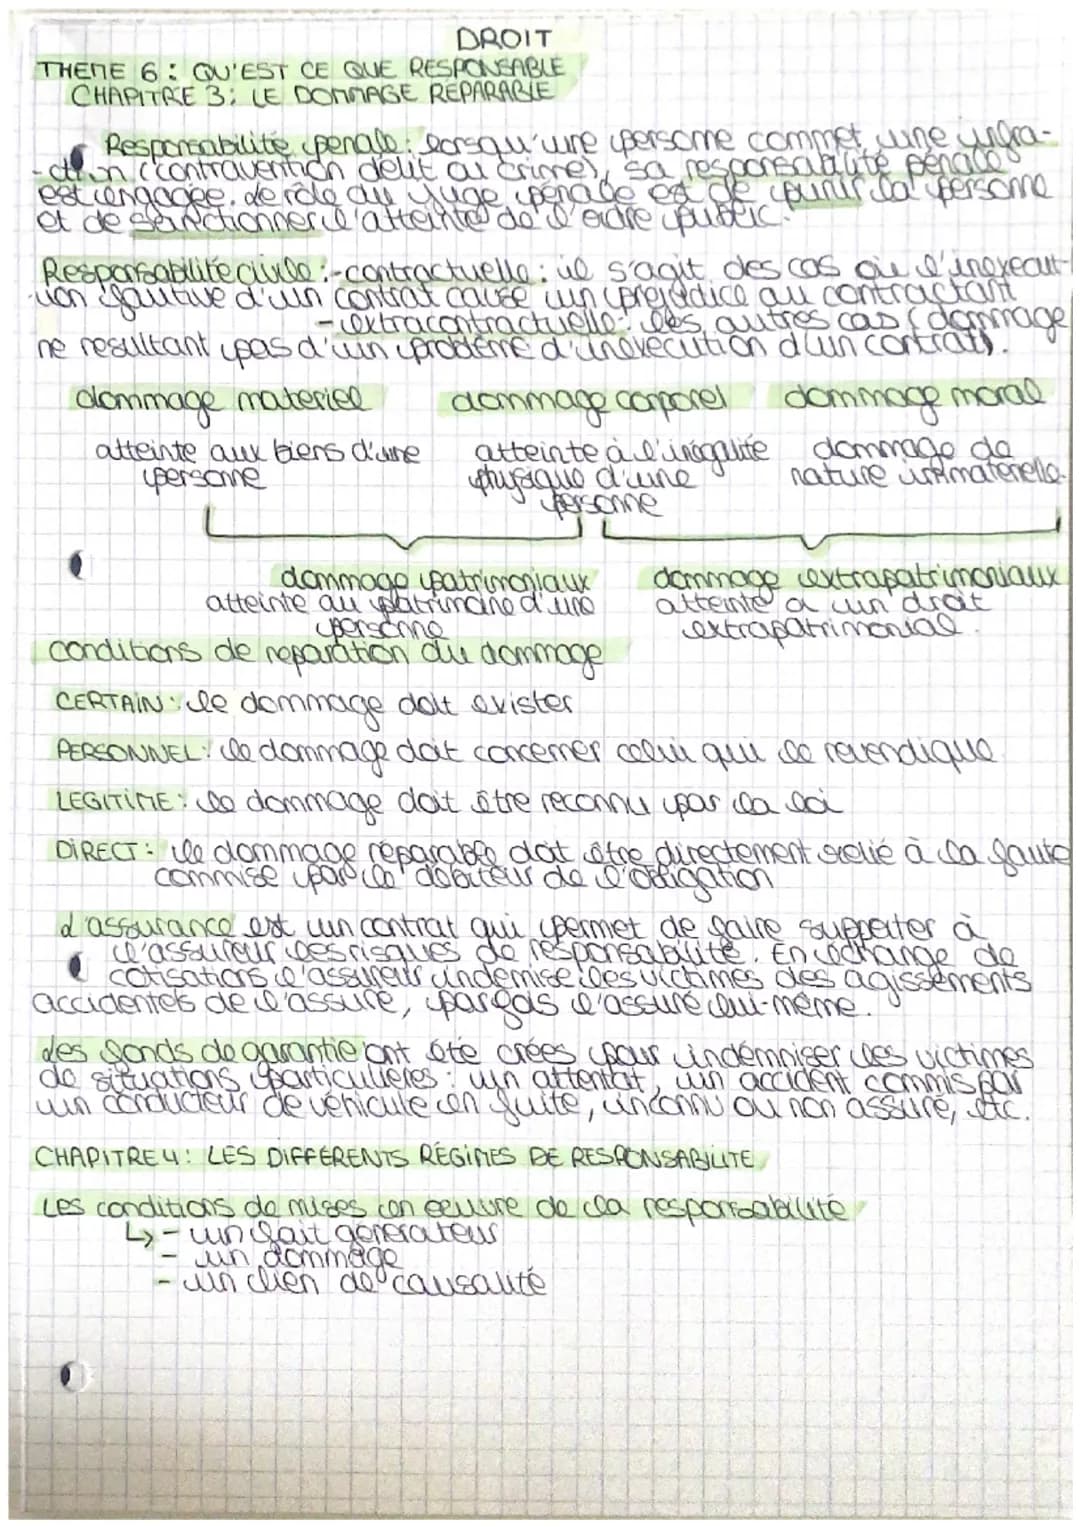 DROIT
THEME 6 : QU'EST CE QUE RESPONSABLE
CHAPITRE 3 : LE DOMMAGE REPARABLE
Responsabilité penale : lorsqu'une personne commet une infra-
-ction (contravention délit ou crime), sa responsabilité pénale
est engagée. Le rôle du juge pénale est de punir la personne
et de sanctionner l'atteinte de l'ordre public.
Responsabilité civile : -contractuelle : il s'agit des cas où l'inexecut-
-ion fautive d'un contrat cause un préjudice au contractant
- extracontractuelle : les autres cas (dommage
ne resultant pas d'un problème d'inexécution d'un contrat).
dommage materiel dommage corporel dommage moral
atteinte aux biens d'une atteinte à l'inégalité dommage de
personne physique d'une nature immaterielle.
personne
dommage patrimoniaux dommage extrapatrimoniaux
atteinte au patrimoine d'une atteinte a un droit
personne extrapatrimonial.
conditions de reparation du dommage
CERTAIN : le dommage doit exister
PERSONNEL : le dommage doit concerner celui qui le revendique
LEGITIME : le dommage doit être reconnu par la loi
DIRECT : le dommage réparable doit être directement relié à la faute
commise par le débiteur de l'obligation
L'assurance est un contrat qui permet de faire supporter à
l'assureur les risques de responsabilité. En échange de
cotisations l'assureur indemise les victimes des agissements
accidentels de l'assuré, parfois l'assuré lui-même.
Les fonds de garantie ont été crées pour indemniser les victimes
de situations particulières : un attentat, un accident commis par
un conducteur de véhicule en fuite, inconnu ou non assuré, etc.
CHAPITRE 4 : LES DIFFÉRENTS RÉGIMES DE RESPONSABILITE
Les conditions de mises en oeuvre de la responsabilité
↳ - un fait générateur
- un dommage
- un lien de causalité